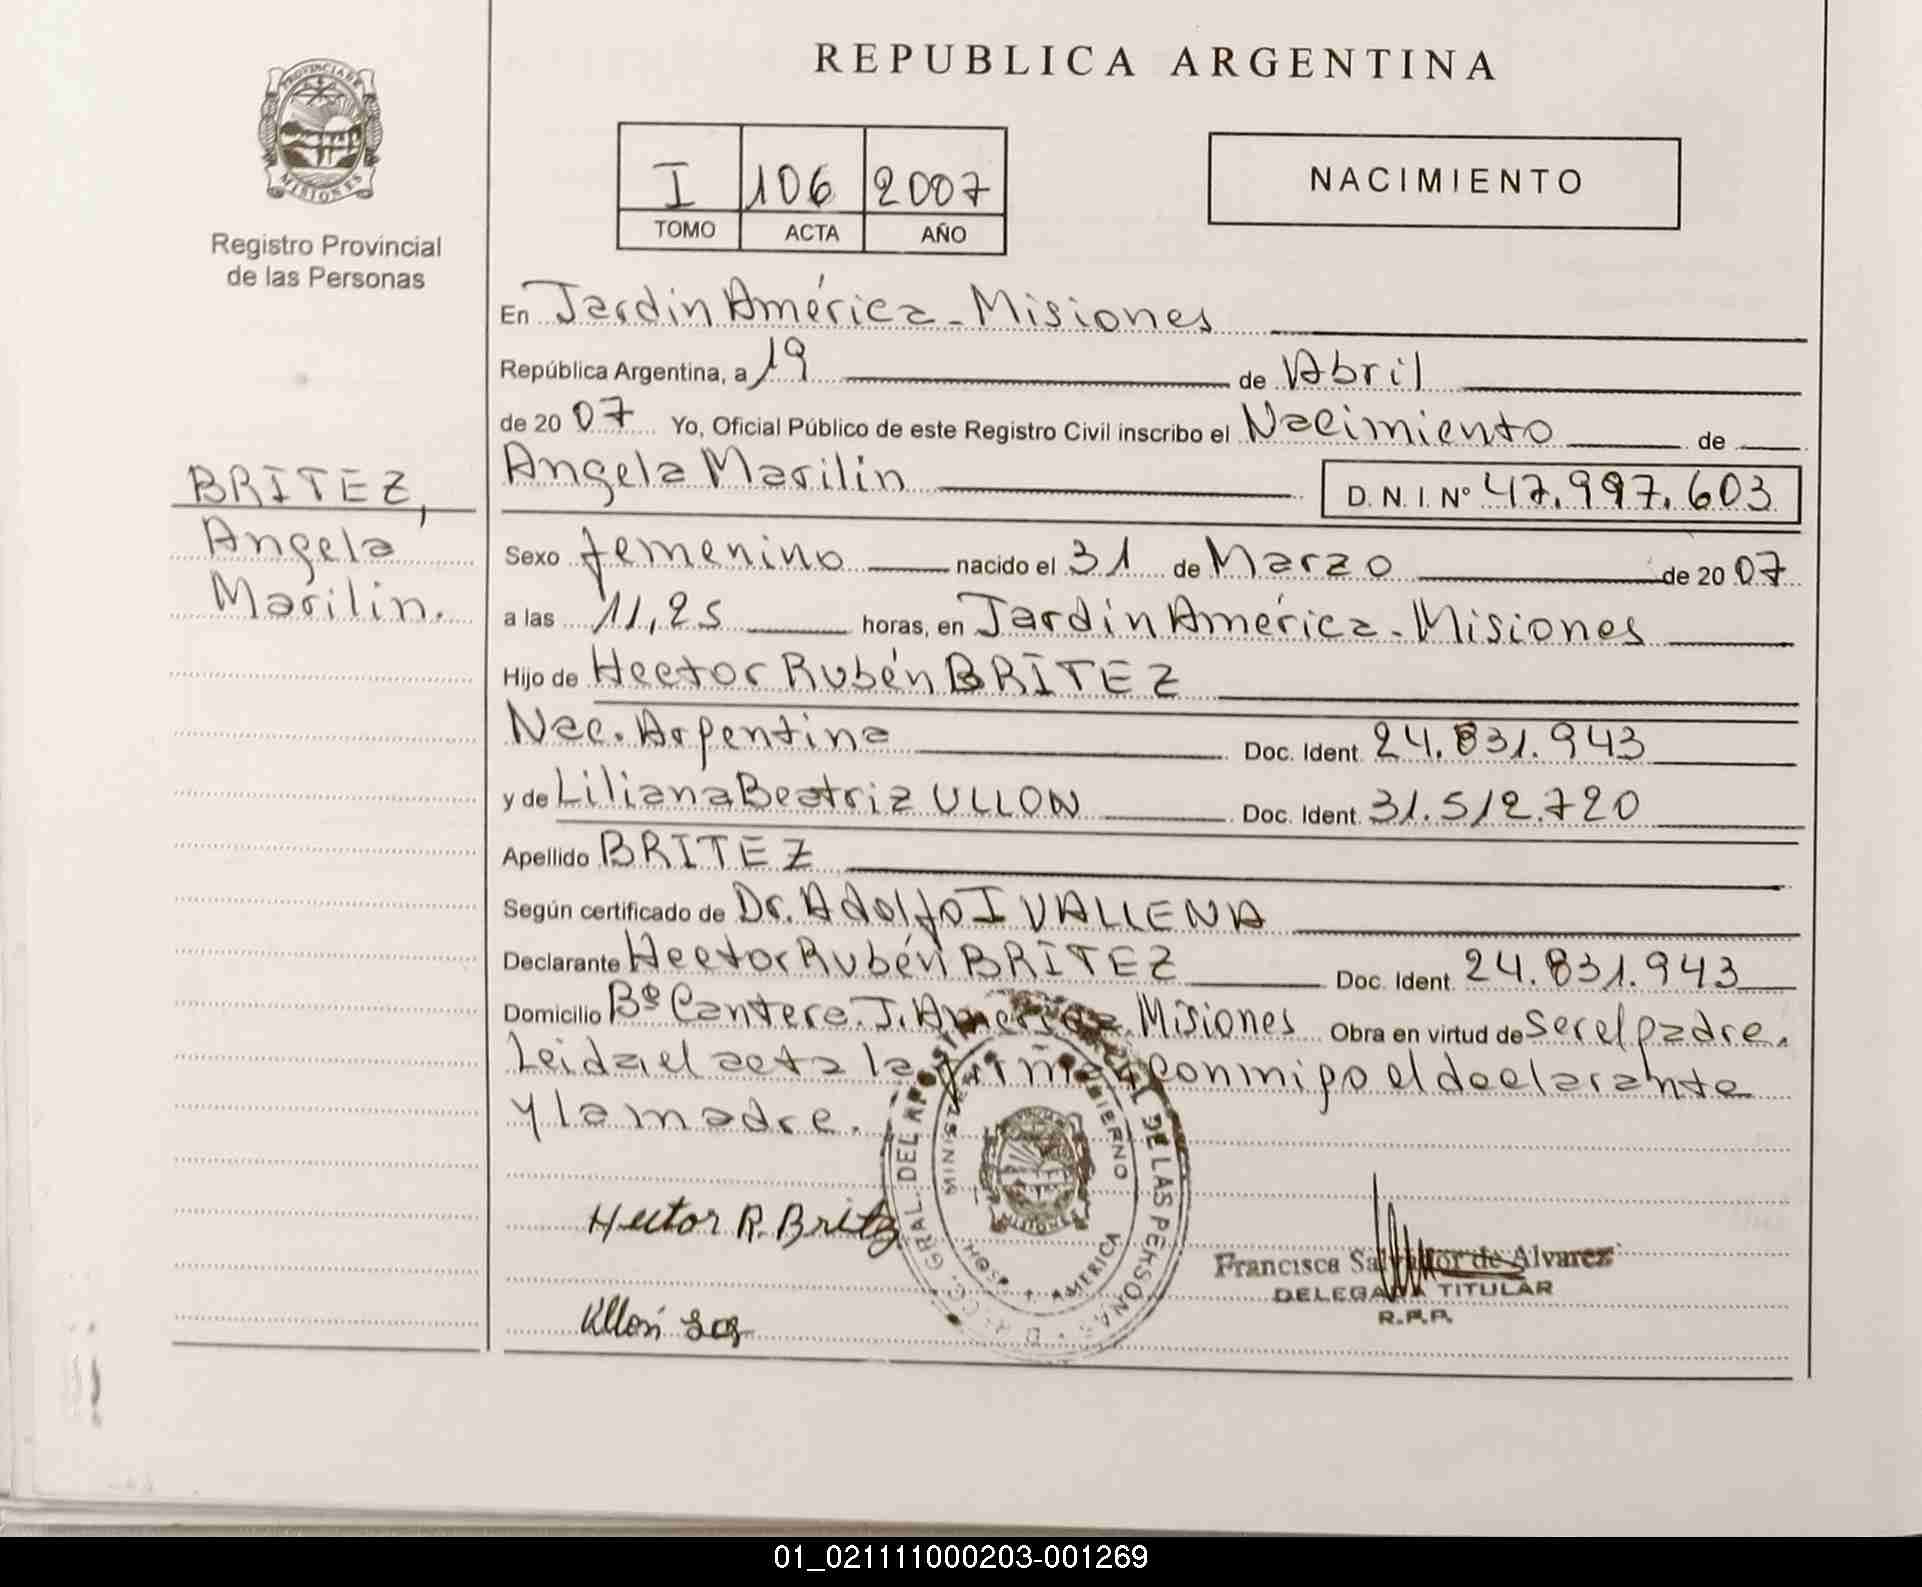 REPUBLICA ARGENTINA
PROVINCIA DE
MISIONES
Registro Provincial
de las Personas
I 106 2007
TOMO ACTA AÑO
NACIMIENTO
En Jardín América - Misiones
República Argentina, a 19 de Abril
de 20 07 Yo, Oficial Público de este Registro Civil inscribo el Nacimiento de
Angela Marilin D. N. I. Nº 47.997.603
BRITEZ,
Angela
Marilin.
Sexo femenino nacido el 31 de Marzo de 20 07
a las 11,25 horas, en Jardín América - Misiones
Hijo de Hector Rubén BRITEZ
Nac. Argentina Doc. Ident. 24.831.943
y de Liliana Beatriz ULLON Doc. Ident. 31.512.720
Apellido BRITEZ
Según certificado de Dr. Adolfo I VALLENA
Declarante Hector Rubén BRITEZ Doc. Ident. 24.831.943
Domicilio Bº Cantera. J. America. Misiones Obra en virtud de ser el padre.
Leida el acta la firman conmigo el declarante
y la madre.
Hector R. Britez
Ullon
GRAL. DEL DE LAS PERSONAS
AMERICA
MISIONES
Francisca Salvador de Alvarez
DELEGADA TITULAR
R.P.P.
01_021111000203-001269